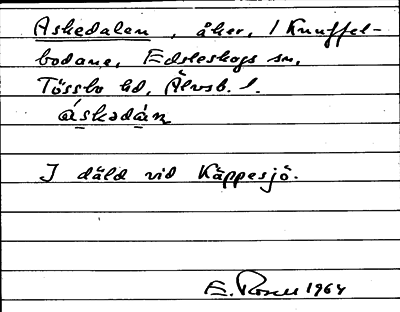 Askedalen, åker, / Knuffel-
bodane, Edsleskogs sn,
Tössbo hd, Älvsb. l.
áskadán
I däld vid Käppesjö.
E. Rosell 1964